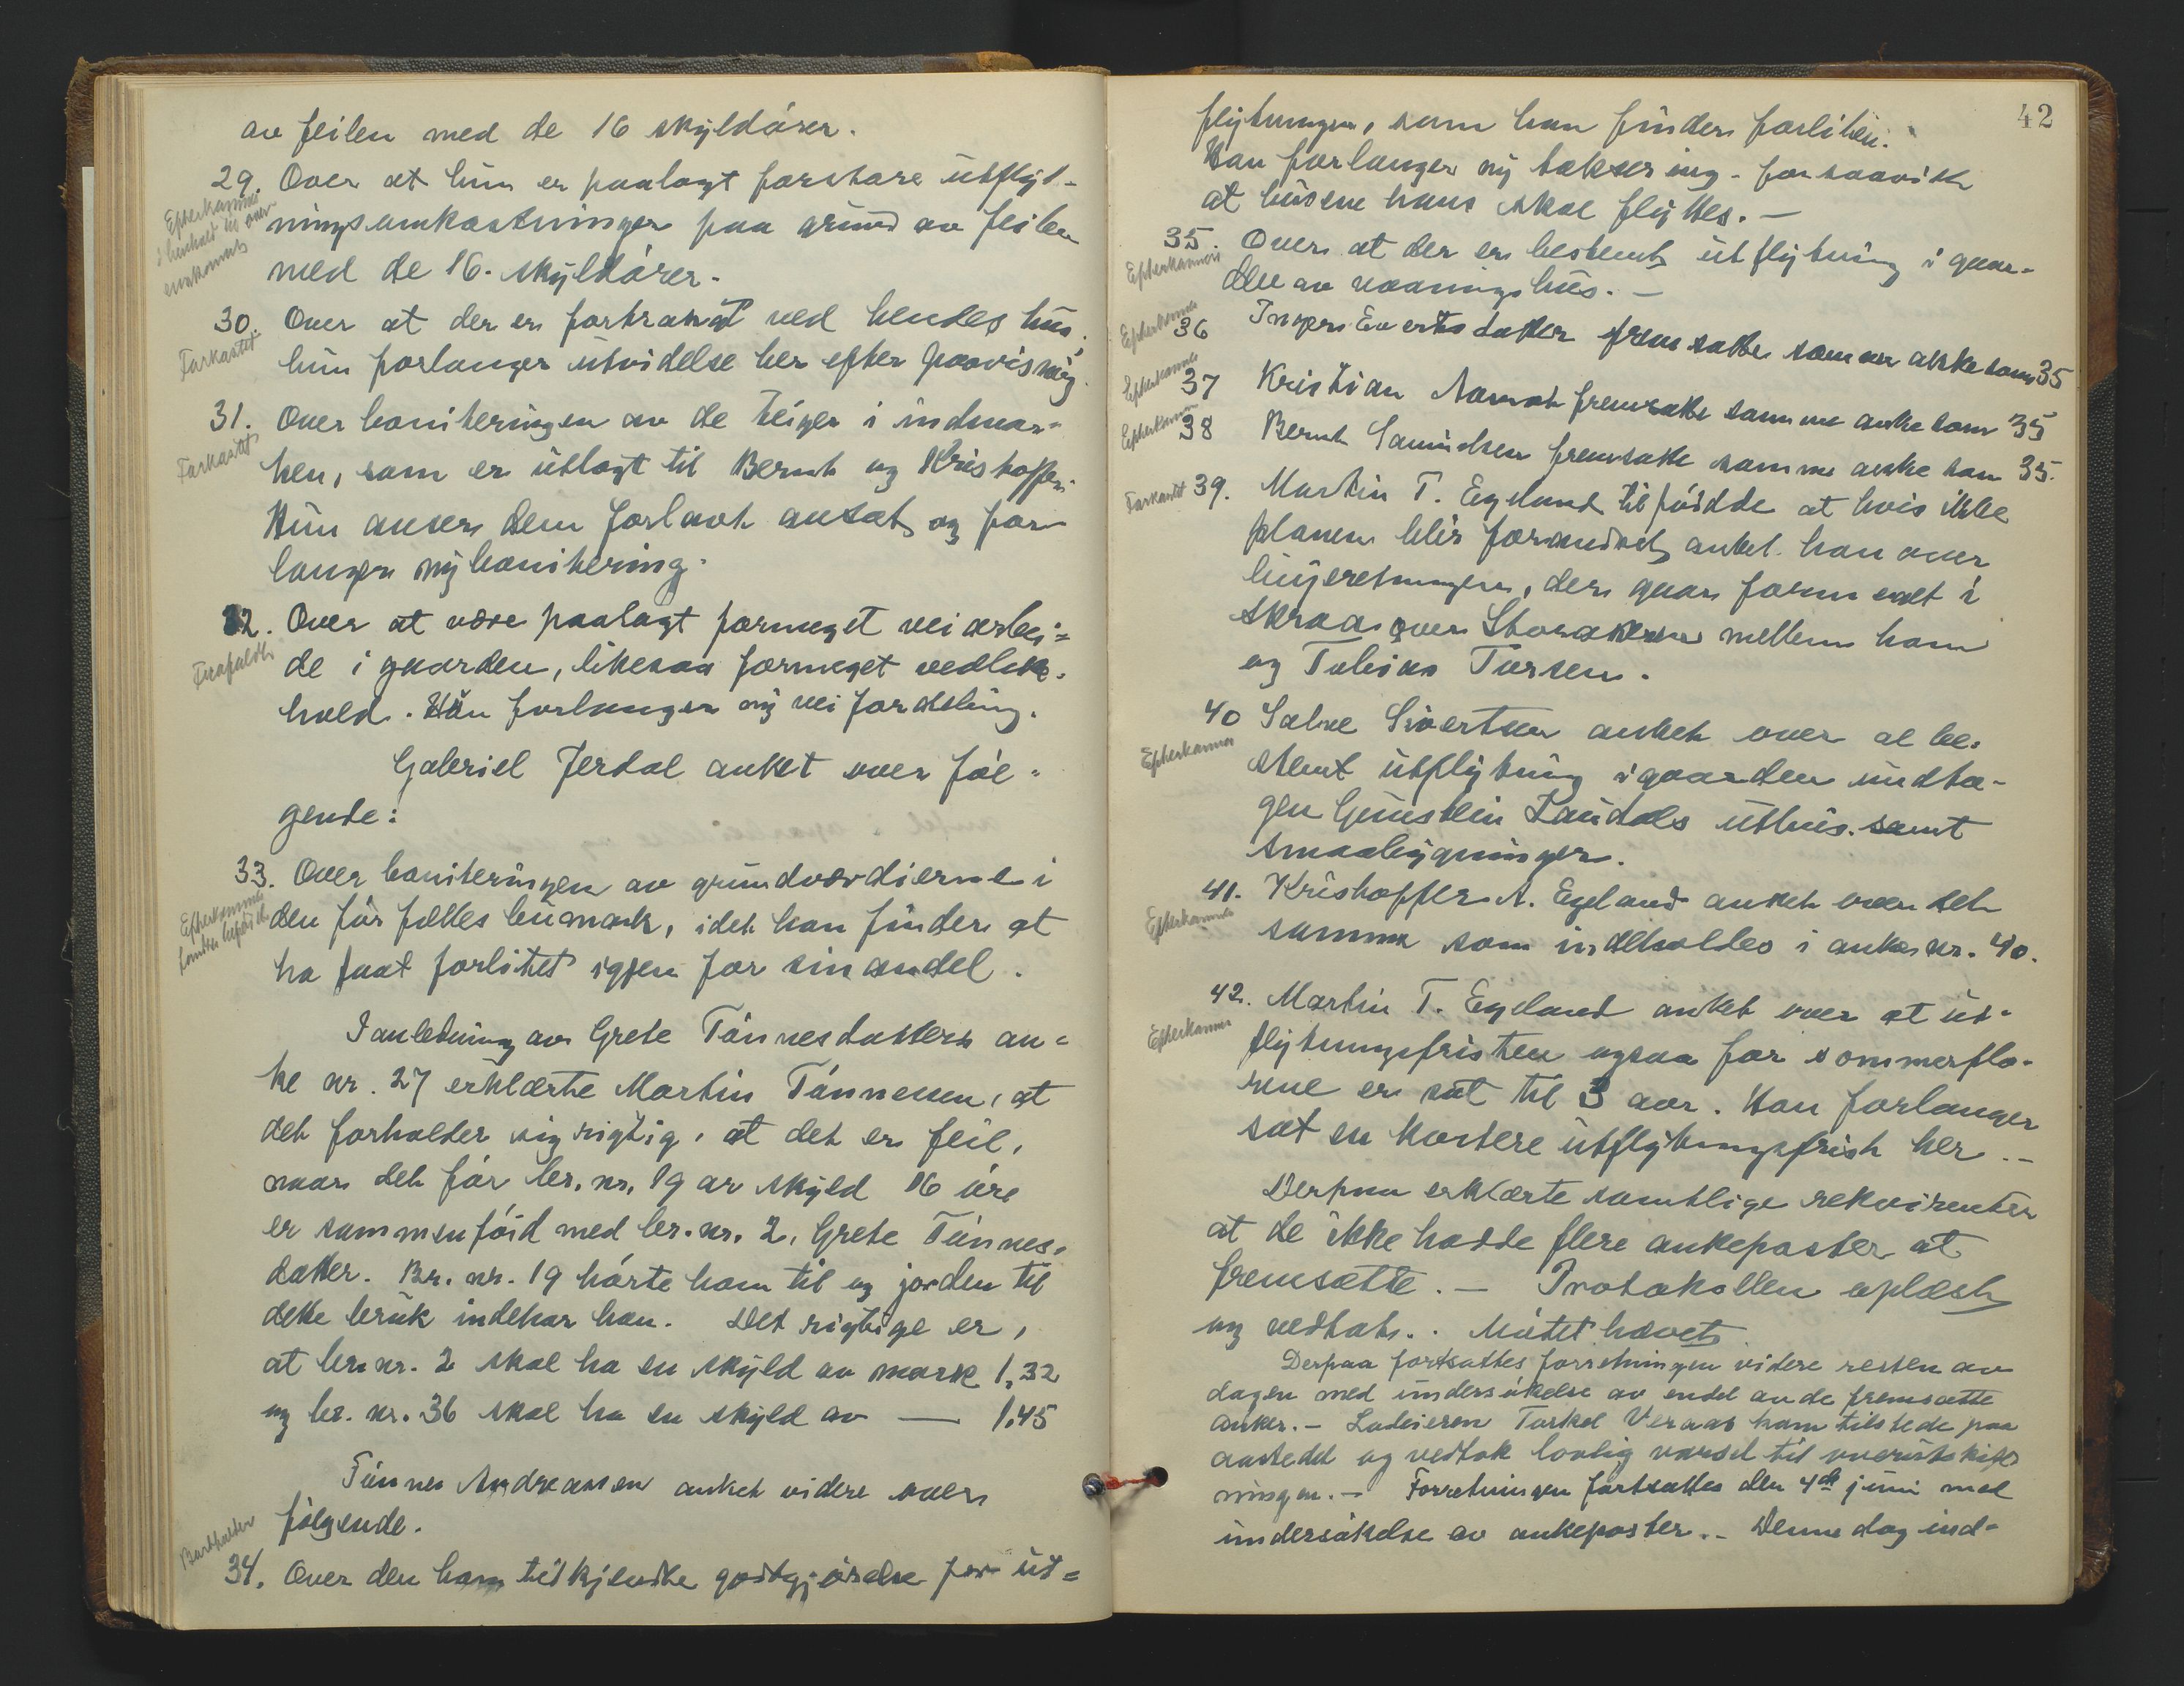 av feilen med de 16 skyldører.
29. Over at hun er paalagt forstore utflyt-
Efterkommes
i henhold til over
enskomst
ningsomkostninger paa grund av feilen
med de 16. skyldører.
30. Over at der er fortrangt ved hendes hus,
Forkastet
hun forlanger utvidelse her efter paavisning.
31. Over boniteringen av de teiger i indmar-
Forkastet
ken, som er utlagt til Bernt og Kristoffer.
Hun anser dem forlavt ansat og for-
langer ny bonitering.
32. Over at være paalagt formeget veiarbei-
Frafaldt
de i gaarden, likesaa formeget vedlike-
hold. Hun forlanger ny veifordeling.
Gabriel Jerdal anket over føl-
gende:
33. Over boniteringen av grundværdierne i
Efterkommes
den før fælles heimark, idet han finder at
ha faat forlitet igjen for sin andel.
I anledning av Grete Tønnesdatters an-
ke nr. 27 erklærte Martin Tønnessen, at
det forholder sig rigtig, at det er feil,
naar det før br. nr. 19 av skyld 16 øre
er sammenføid med br. nr. 2, Grete Tønnes-
datter. Br. nr. 19 hørte ham til og jorden til
dette bruk indehar han. Det rigtige er,
at br. nr. 2 skal ha en skyld av mark 1,32
og br. nr. 36 skal ha en skyld av — 1,45
Tønnes Andreassen anket videre over
følgende.
Bortfalder
34. Over den ham tilkjendte godtgjørelse for ut-
42
flytningen, som han finder forliten.
Han forlanger ny taksering. forsaavidt
at husene hans skal flyttes. —
35. Over at der er bestemt utflytning i gaar-
Efterkommes
den av vaaningshus. —
Efterkommes
36 Inger Evertsdatter fremsatte samme anke som 35
Efterkommes
37 Kristian Aamot fremsatte samme anke som 35
Efterkommes
38 Bernt Samuelsen fremsatte samme anke som 35.
Forkastet 39. Martin T. Egeland tilføidde at hvis ikke
planen blir forandret anket han over
linjeretningen, der gaar formeget i
skraa over Storakeren mellem ham
og Tobias Torsen.
40 Salve Sivertsen anket over al be-
Efterkommes
stemt utflytning i gaarden undta-
gen Gunstein Laudals uthus samt
smaabygninger.
41. Kristoffer A. Egeland anket over det
Efterkommes
samme som indeholdes i anke nr. 40.
42. Martin T. Egeland anket over at ut-
Efterkommes
flytningsfristen ogsaa for sommerflo-
rene er sat til 3 aar. Han forlanger
sat en kortere utflytningsfrist her. —
Derpaa erklærte samtlige rekvirenter
at de ikke hadde flere ankeposter at
fremsætte. — Protokollen oplæst
og vedtat. . Møtet hævet.
Derpaa fortsattes forretningen videre resten av
dagen med undersøkelse av endel av de fremsatte
anker. — Lodeieren Torkel Veraas kom tilstede paa
aastedet og vedtok lovlig varsel til overutskift
ningen. — Forretningen fortsattes den 4de juni med
undersøkelse av ankeposter. — Denne dag ind-